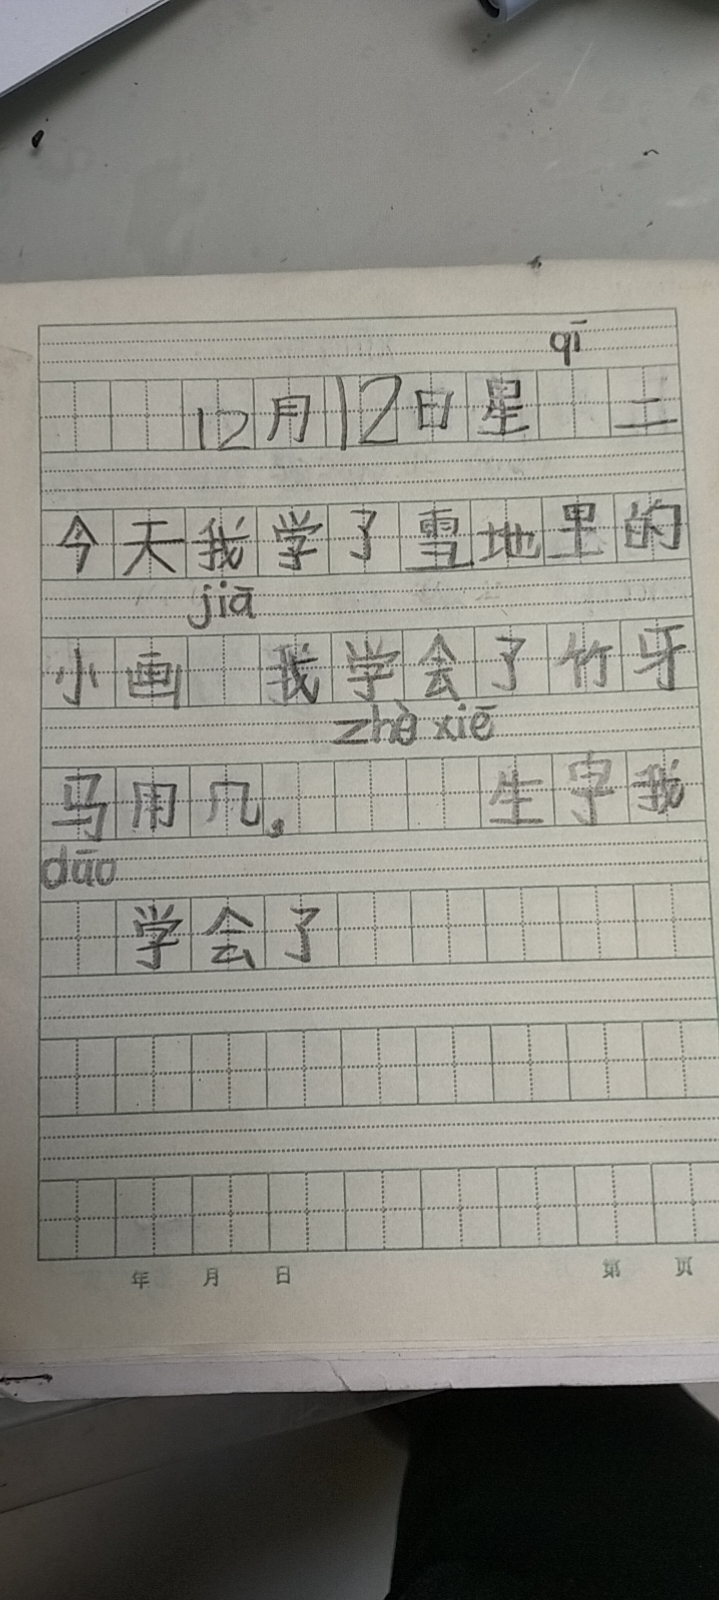 qī
12月12日星 二
今天我学了雪地里的
jiā
小画 我学会了竹牙
zhè xiē
马用几。 生字我
dāo
学会了
年 月 日 第 页